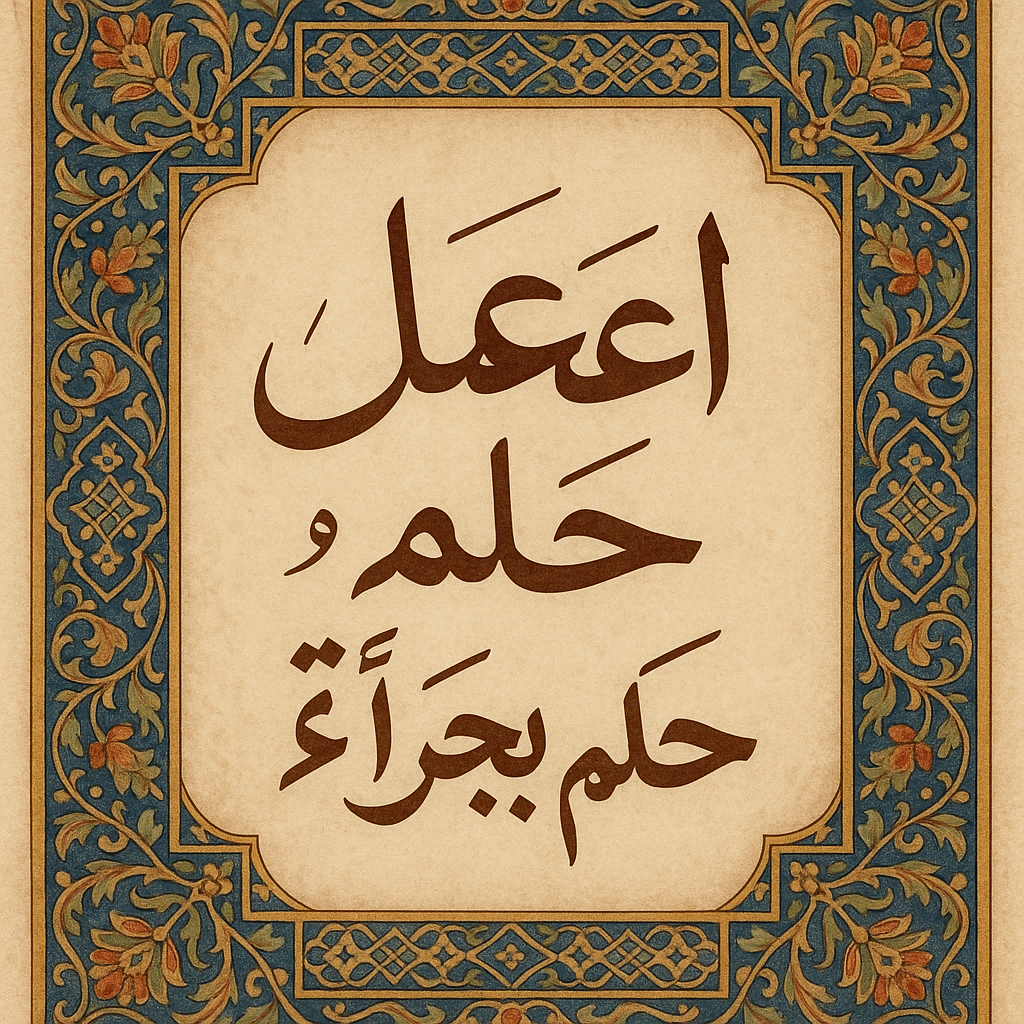 اععمل
حلم و
حلم بجرأة